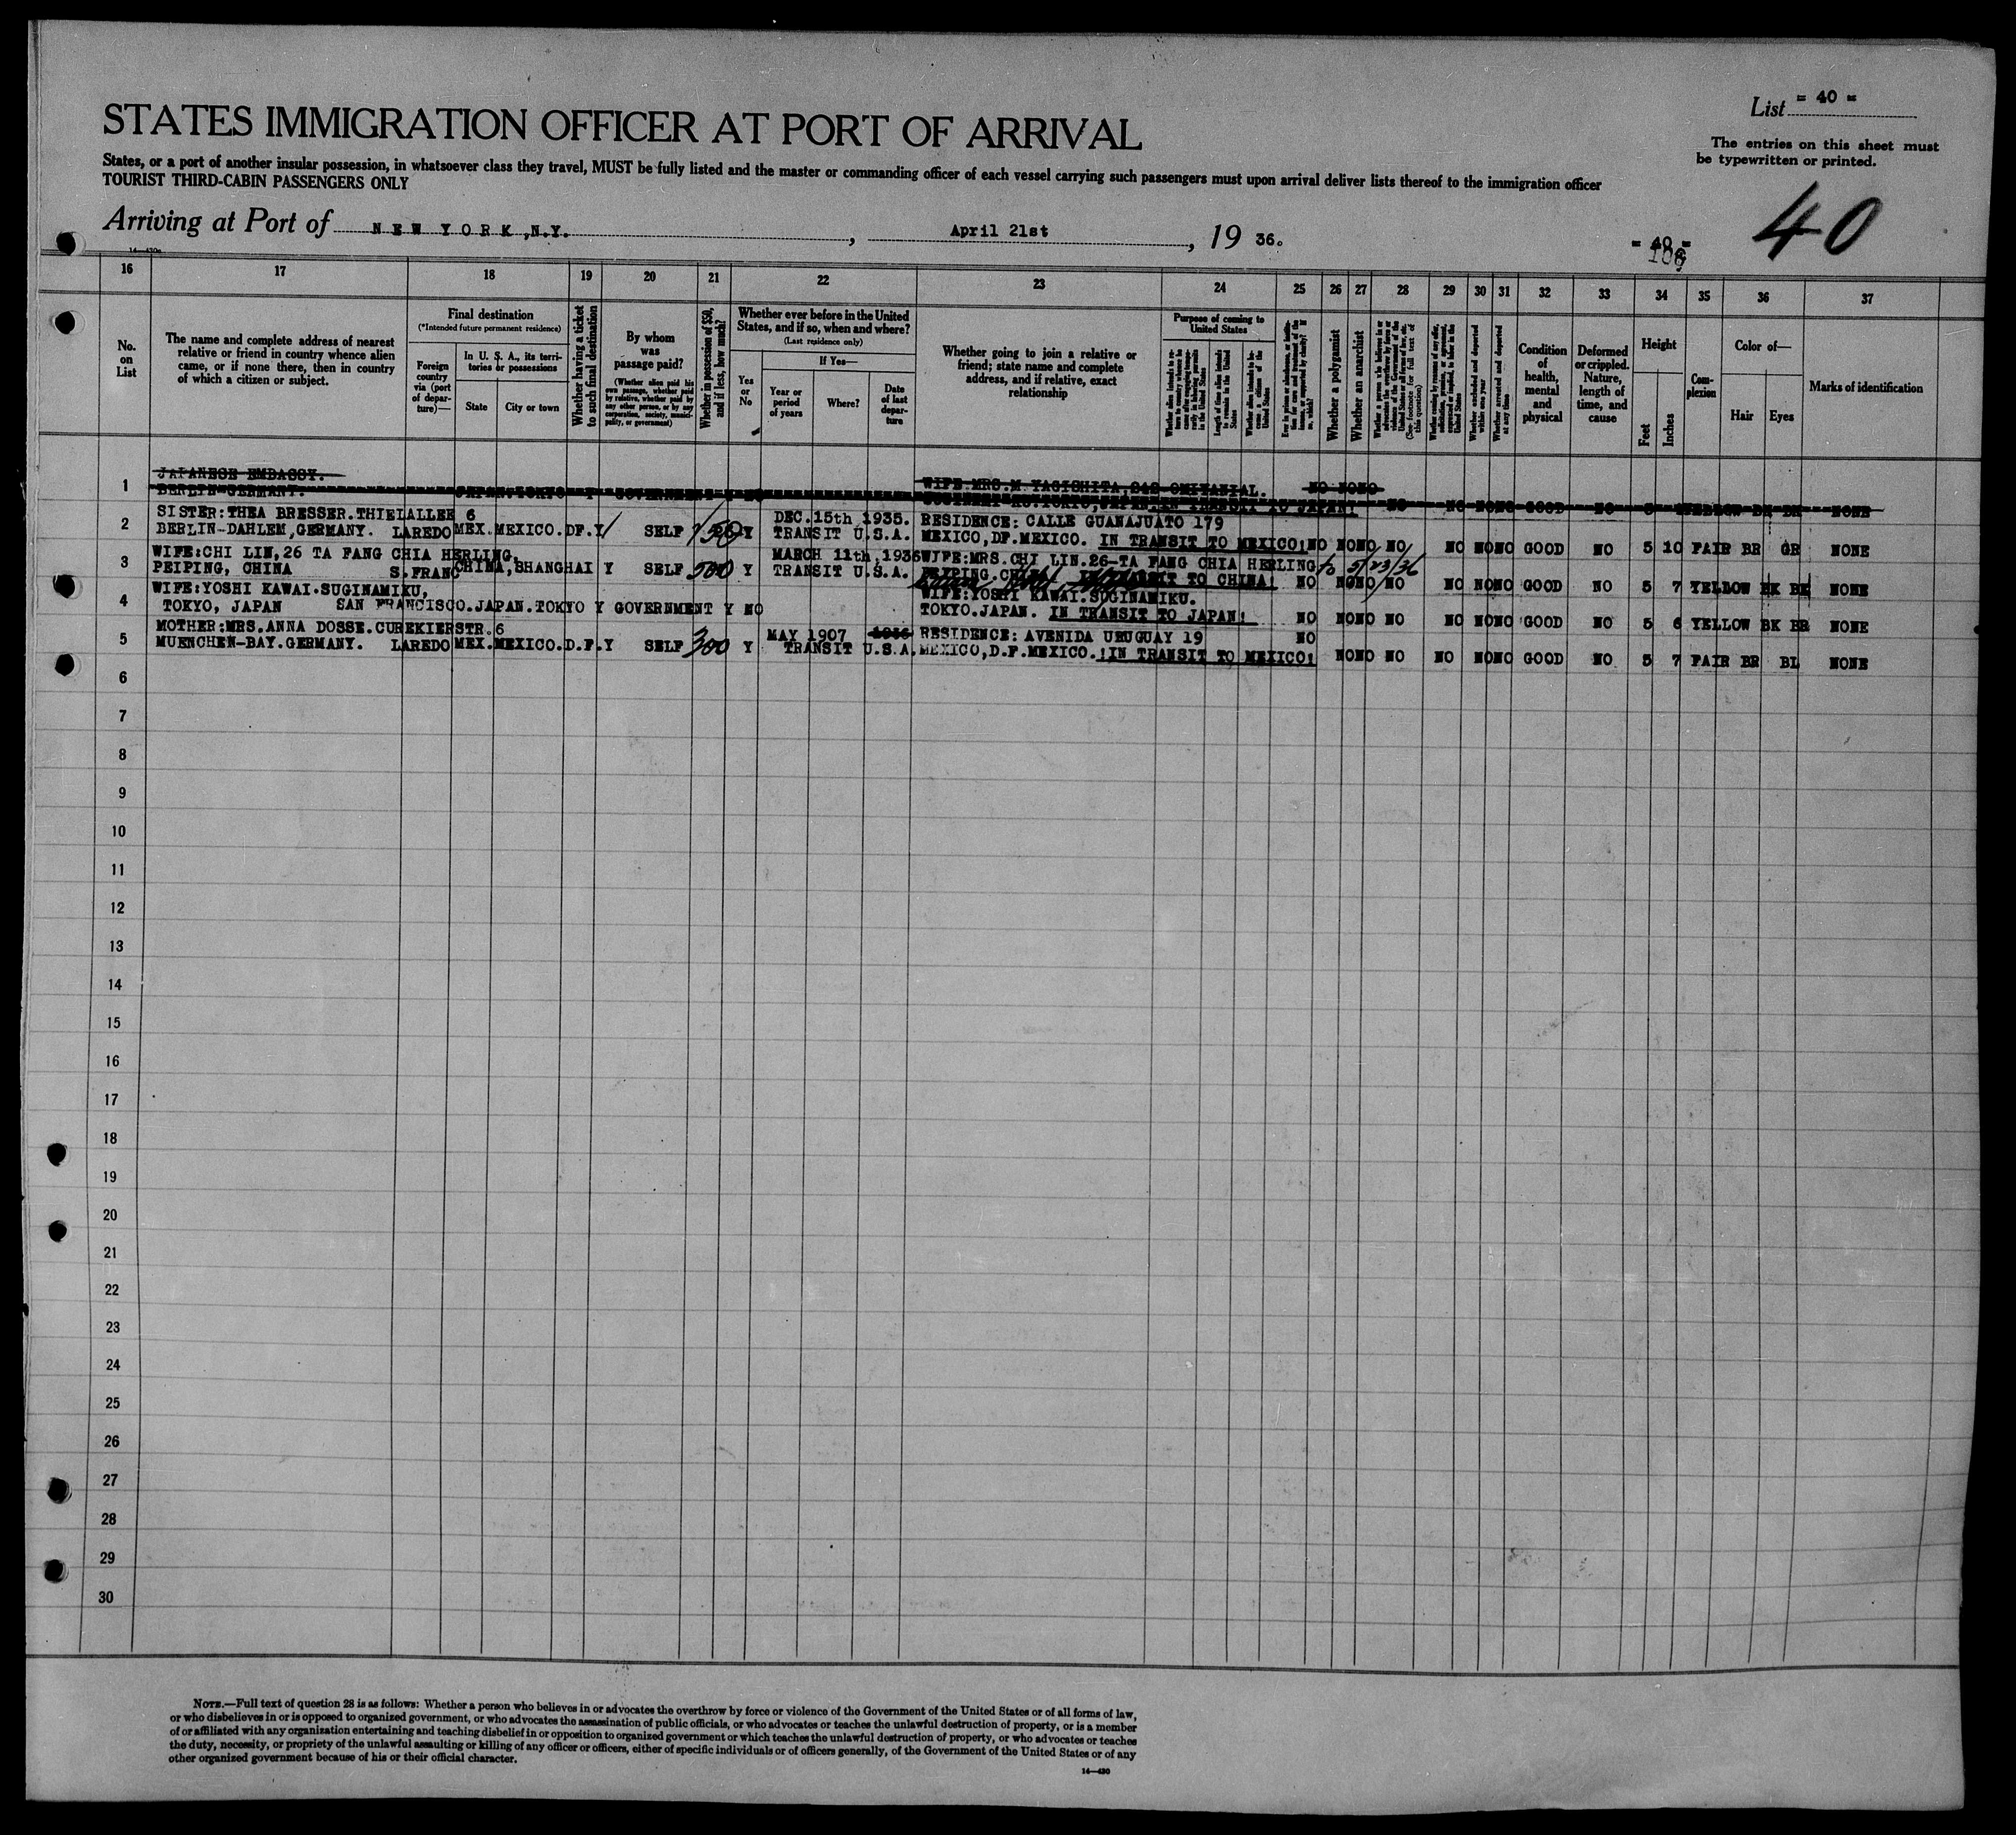 List = 40 =
STATES IMMIGRATION OFFICER AT PORT OF ARRIVAL
The entries on this sheet must
be typewritten or printed.
States, or a port of another insular possession, in whatsoever class they travel, MUST be fully listed and the master or commanding officer of each vessel carrying such passengers must upon arrival deliver lists thereof to the immigration officer
TOURIST THIRD-CABIN PASSENGERS ONLY
40
Arriving at Port of NEW YORK, N.Y. , April 21st , 19 36.
= 40 =
16 17 18 19 20 21 22 23 24 25 26 27 28 29 30 31 32 33 34 35 36 37
No. on List
The name and complete address of nearest relative or friend in country whence alien came, or if none there, then in country of which a citizen or subject.
Final destination
(*Intended future permanent residence)
Foreign country via (port of departure)—
In U. S. A., its territories or possessions
State
City or town
Whether having a ticket to such final destination
By whom was passage paid?
(Whether alien paid his own passage, whether paid by relative, whether paid by any other person, or by any corporation, society, municipality, or government)
Whether in possession of $50, and if less, how much?
Whether ever before in the United States, and if so, when and where?
(Last residence only)
Yes or No
If Yes—
Year or period of years
Where?
Date of last departure
Whether going to join a relative or friend; state name and complete address, and if relative, exact relationship
Purpose of coming to United States
Length of time alien intends to remain in the United States
Whether a polygamist
Whether an anarchist
Condition of health, mental and physical
Deformed or crippled. Nature, length of time, and cause
Height
Feet
Inches
Complexion
Color of—
Hair
Eyes
Marks of identification
1 JAPANESE EMBASSY. WIFE MRS.M YAGISHITA, NO NONO
BERLIN-GERMANY. GOVERNMENT IN TRANSIT TO JAPAN! NO NO NONO GOOD NO 5 YELLOW BK BK NONE
2 SISTER:THEA BRESSER.THIELALLEE 6 DEC.15th 1935. RESIDENCE: CALLE GUANAJUATO 179
BERLIN-DAHLEM,GERMANY. LAREDO MEX.MEXICO.DF.Y SELF 150 Y TRANSIT U.S.A. MEXICO,DF.MEXICO. IN TRANSIT TO MEXICO! NO NONO NO NO NONO GOOD NO 5 10 FAIR BR GR NONE
3 WIFE:CHI LIN,26 TA FANG CHIA HERLING, MARCH 11th,1936 WIFE:MRS.CHI LIN.26-TA FANG CHIA HERLING to 5/23/36
PEIPING, CHINA S.FRANC CHINA,SHANGHAI Y SELF 500 Y TRANSIT U.S.A. PEIPING IN TRANSIT TO CHINA! NO NONO NO NO NONO GOOD NO 5 7 YELLOW BK BK NONE
4 WIFE:YOSHI KAWAI.SUGINAMIKU, WIFE:YOSHI KAWAI.SUGINAMIKU.
TOKYO, JAPAN SAN FRANCISCO.JAPAN.TOKYO Y GOVERNMENT Y NO TOKYO.JAPAN. IN TRANSIT TO JAPAN! NO NONO NO NO NONO GOOD NO 5 6 YELLOW BK BR NONE
5 MOTHER:MRS.ANNA DOSSE.CUREKIERSTR.6 MAY 1907 1936 RESIDENCE: AVENIDA URUGUAY 19 NO
MUENCHEN-BAY.GERMANY. LAREDO MEX.MEXICO.D.F.Y SELF 300 Y TRANSIT U.S.A. MEXICO,D.F.MEXICO.!IN TRANSIT TO MEXICO! NONO NO NO NONO GOOD NO 5 7 FAIR BR BL NONE
6
7
8
9
10
11
12
13
14
15
16
17
18
19
20
21
22
23
24
25
26
27
28
29
30
NOTE.—Full text of question 28 is as follows: Whether a person who believes in or advocates the overthrow by force or violence of the Government of the United States or of all forms of law,
or who disbelieves in or is opposed to organized government, or who advocates the assassination of public officials, or who advocates or teaches the unlawful destruction of property, or is a member
of or affiliated with any organization entertaining and teaching disbelief in or opposition to organized government or which teaches the unlawful destruction of property, or who advocates or teaches
the duty, necessity, or propriety of the unlawful assaulting or killing of any officer or officers, either of specific individuals or of officers generally, of the Government of the United States or of any
other organized government because of his or their official character.
14—430